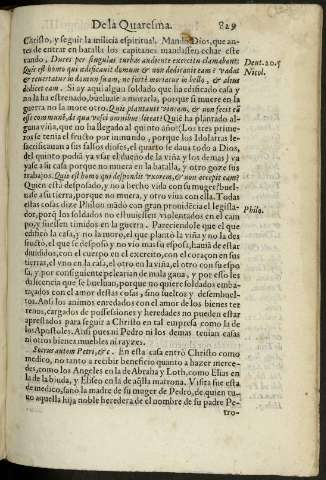 De la Quaresma. 829
Christo, y seguir la milicia espiritual. Manda Dios, que an-
tes de entrar en batalla los capitanes mandassen echar este
vando, Duces per singulas turbas audiente exercitu clamabunt: Deut. 20. 5
Quis est homo qui ædificauit domum & non dedicauit eam? vadat Nicol.
& reuertatur in domum suam, ne forte moriatur in bello, & alius
dedicet eam. Si ay aqui algun soldado que ha edificado casa y
no la ha estrenado, bueluase a morarla, porque si muere en la
guerra no la more otro. Quis plantauit vineam, & non fecit eã
esse communẽ, de qua vesci omnibus liceat? Quiẽ ha plantado al-
guna viña, que no ha llegado al quinto año? (Los tres prime-
ros se tenia el fructo por inmundo, porque los Idolatras le
sacrificauan a sus falsos dioses, el quarto se daua todo a Dios,
del quinto podia ya vsar el dueño de la viña y los demas) va
yase a su casa porque no muera en la batalla, y otro goze sus
trabajos. Quis est homo qui despondit vxorem, & non accepit eam?
Quien està desposado, y no a hecho vida con su muger? buel-
uase a su tierra, porque no muera, y otro viua con ella. Todas
estas cosas dize Philon mãdò con gran prouidẽcia el legisla- Philo.
dor, porq̃ los soldados no estuuiessen violentados en el cam
po, y fuessen timidos en la guerra. Pareciendole que el que
edificò la casa, y no la mora, el que plantò la viña y no la des
frutò, el que se desposò y no vio mas su esposa, hauiã de estar
diuididos, con el cuerpo en el exercito, con el coraçon en sus
tierras, el vno en la casa, el otro en la viña, el otro con su espo
sa, y por consiguiente pelearian de mala gana, y por esso les
da licencia que se bueluan, porque no quiere soldados emba-
raçados con el amor destas cosas, sino sueltos y desembuel-
tos. Ansi los animos enredados con el amor de los bienes ter
renos, cargados de possessiones y heredades no pueden estar
aprestados para seguir a Christo en tal empresa como la de
los Apostoles. Ansi pues ni Pedro ni los demas tenian casas
ni otros bienes muebles ni rayzes.
Socrus autem Petri, &c. En esta casa entrò Christo como
medico, no tanto a recibir beneficio quanto a hazer merce-
des, como los Angeles en la de Abrahã y Loth, como Elias en
la de la biuda, y Eliseo en la de aq̃lla matrona. Visita fue esta
de medico, sanò la madre de su muger de Pedro, de quien tu-
uo aquella hija noble heredera de el nombre de su padre Pe-
tro-